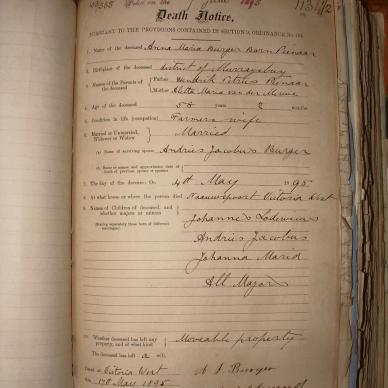 Filed on the 7 June 1895
1131/2
Death Notice,
PURSUANT TO THE PROVISIONS CONTAINED IN SECTION 9, ORDINANCE No. 104.
1. Name of the deceased Anna Maria Burger Born Pienaar
2. Birthplace of the deceased District of Murraysburg
3. Names of the Parents of the deceased Father Hendrik Petrus Pienaar
Mother Aletta Maria van der Merwe
4. Age of the deceased 58 years 2 months
5. Condition in life (occupation) Farmers wife
6. Married or Unmarried, Widower or Widow Married
(a) Name of surviving spouse Andries Jacobus Burger
(b) Name or names and approximate date of death of previous spouse or spouses
7. The day of the decease: On 4th May 1895
8. At what house or where the person died Nauuwepoort Victoria West
9. Names of Children of deceased, and whether majors or minors
Johannes Lodewicus
Andries Jacobus
Johanna Maria
All Majors
10. Whether deceased has left any property, and of what kind Moveable property
The deceased has left a will
Dated at Victoria West
the 17th May 1895
A J Burger